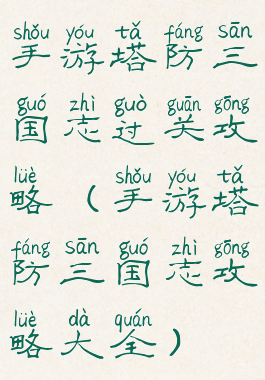 shǒu yóu tǎ fáng sān
手游塔防三
guó zhì guò guān gōng
国志过关攻
lüè shǒu yóu tǎ
略（手游塔
fáng sān guó zhì gōng
防三国志攻
lüè dà quán
略大全）